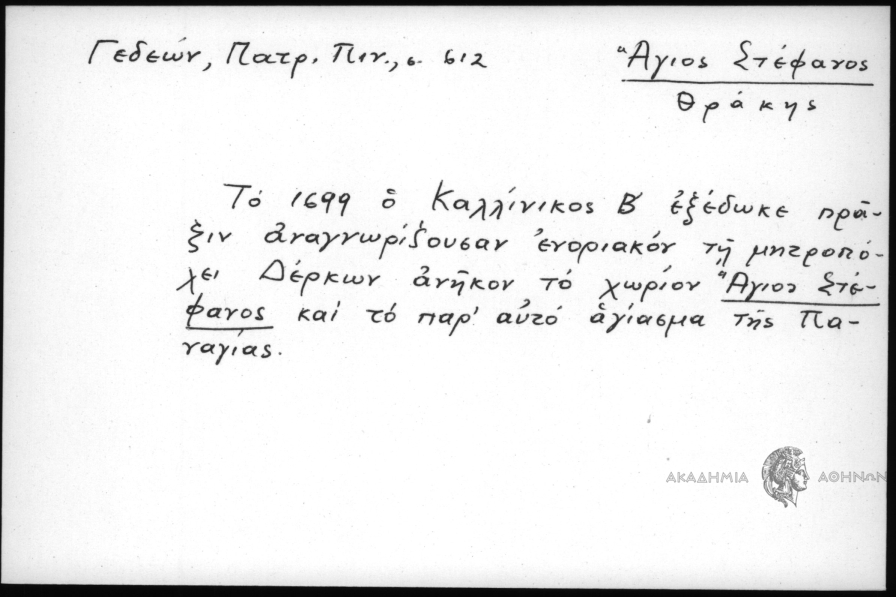 Γεδεών, Πατρ. Πιν., σ. 612
Ἅγιος Στέφανος
Θράκης
Τό 1699 ὁ Καλλίνικος Β΄ ἐξέδωκε πρᾶ-
ξιν ἀναγνωρίζουσαν ἐνοριακόν τῇ μητροπό-
λει Δέρκων ἀνῆκον τό χωρίον Ἅγιος Στέ-
φανος καί τό παρ' αὐτό ἁγίασμα τῆς Πα-
ναγίας.
ΑΚΑΔΗΜΙΑ ΑΘΗΝΩΝ